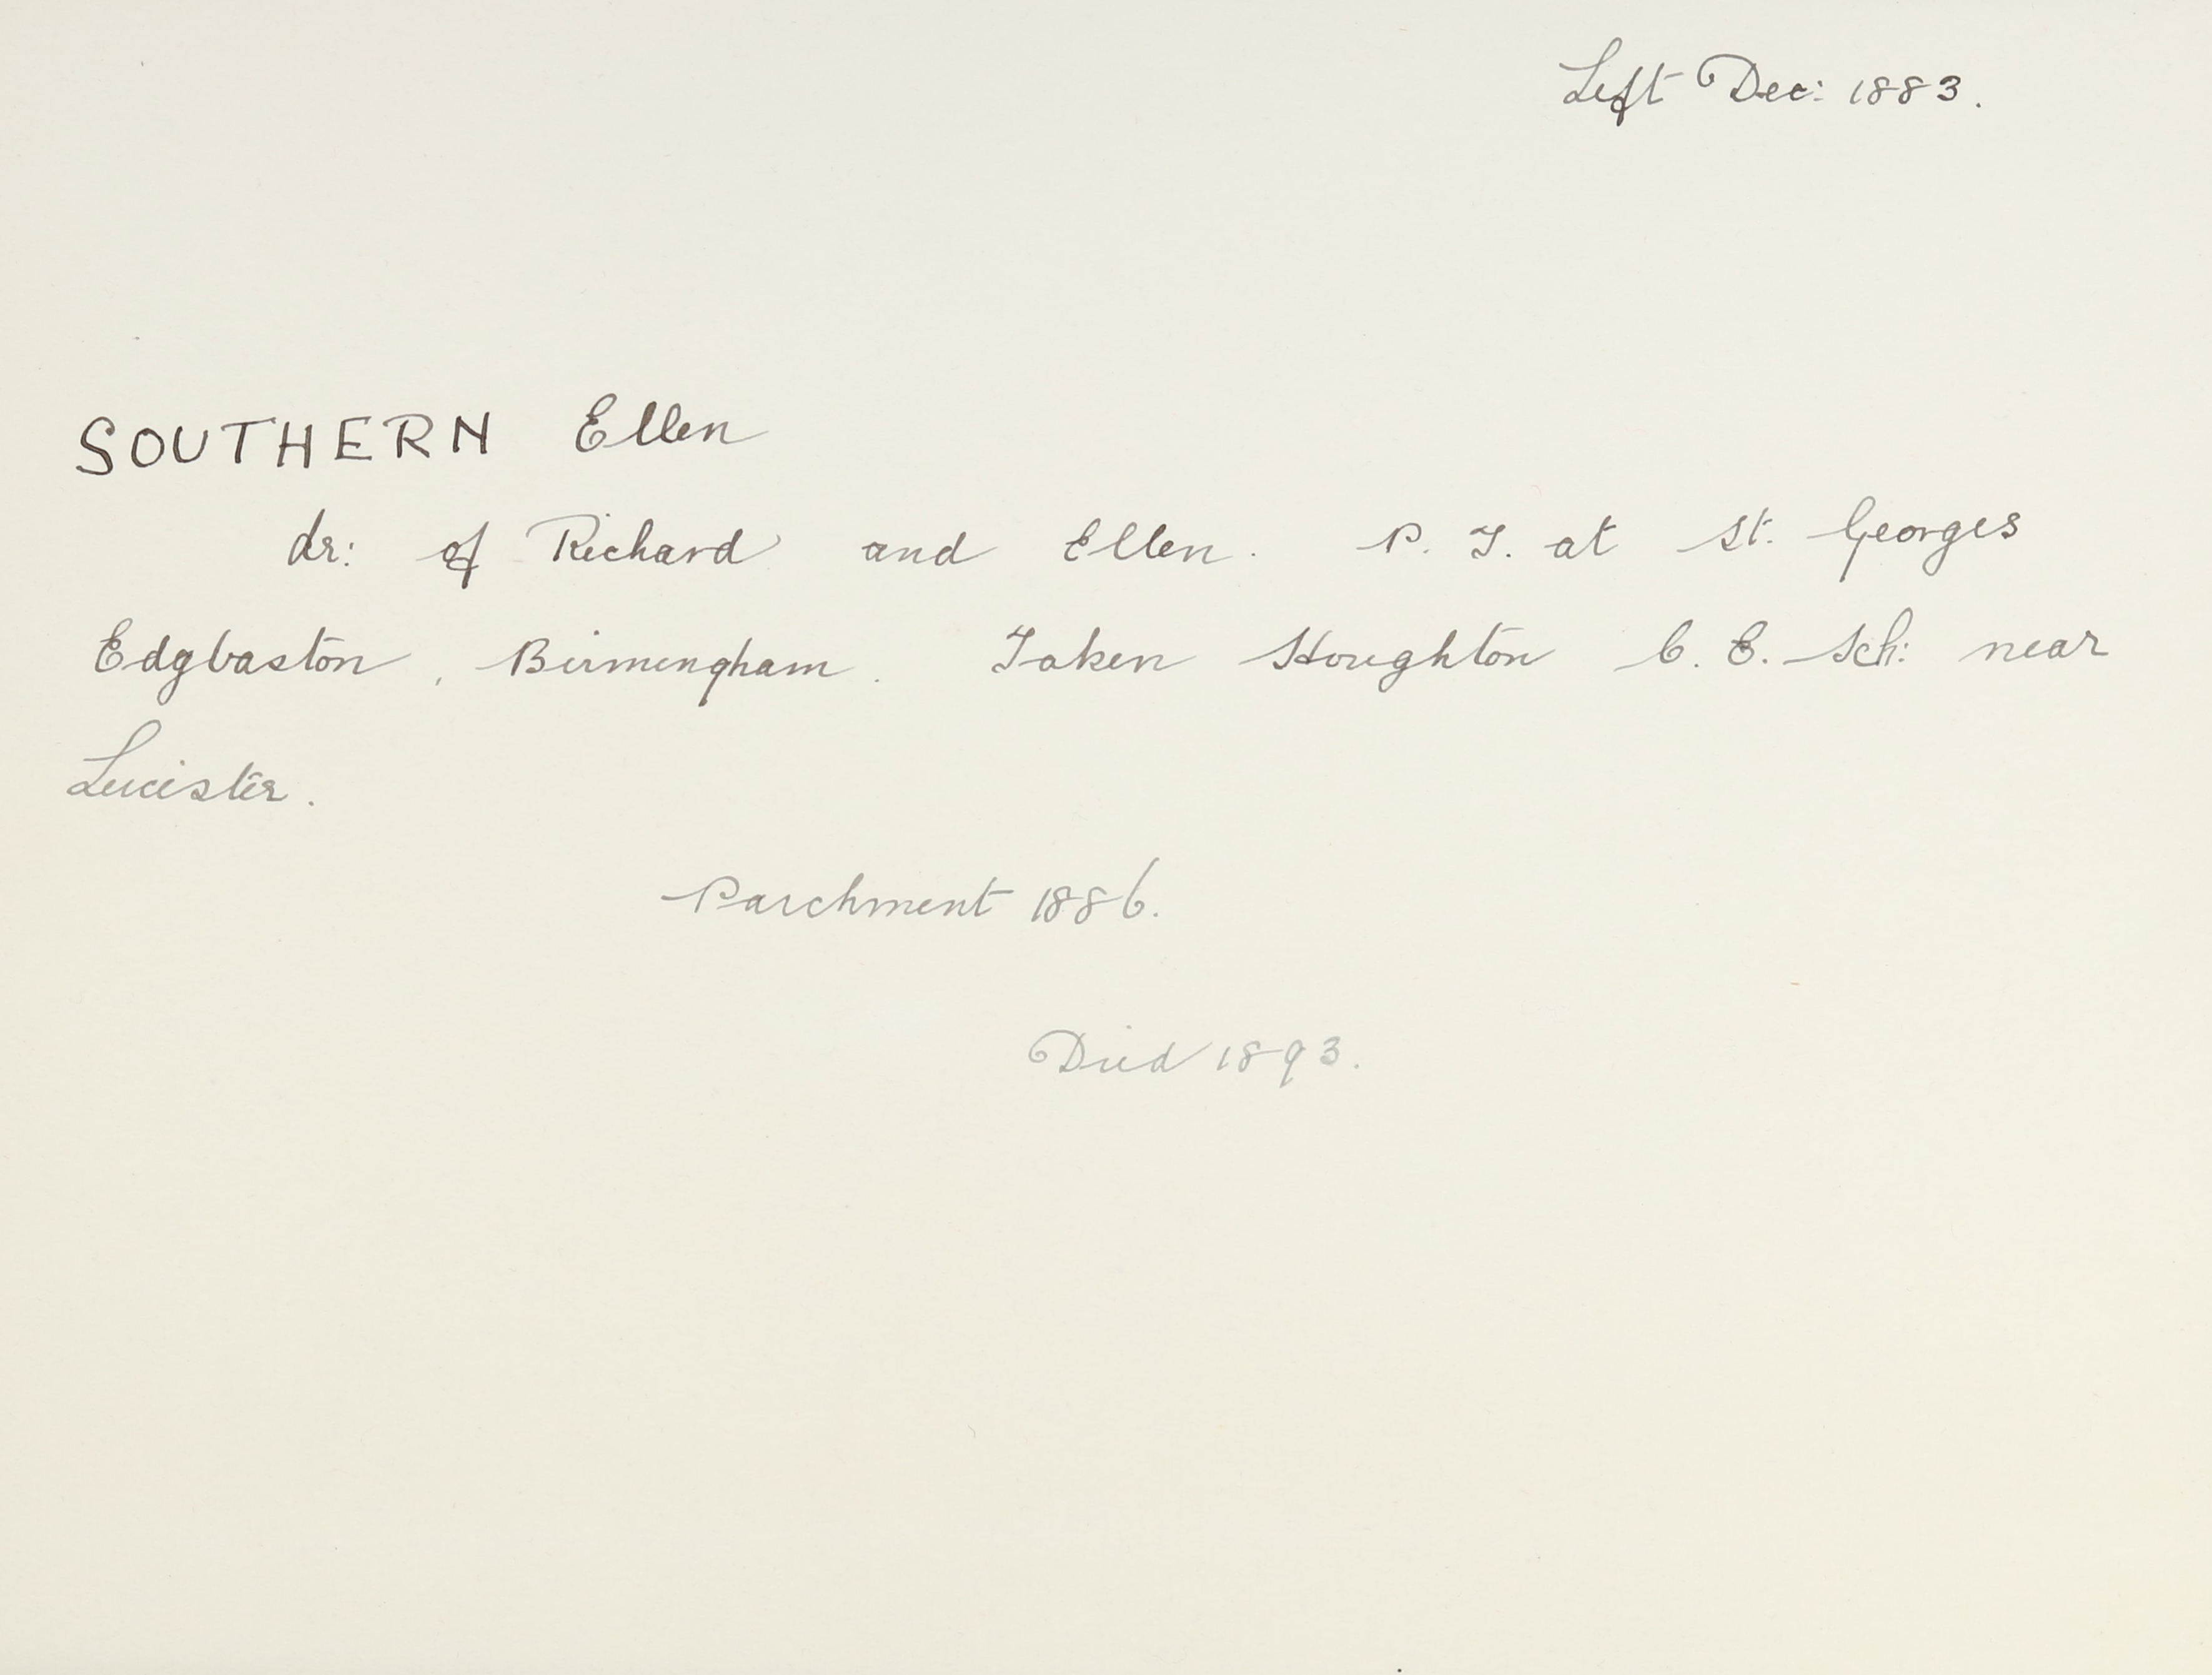 Left Dec: 1883.
SOUTHERN Ellen
dr: of Richard and Ellen. P. T. at St. Georges
Edgbaston, Birmingham. Taken Houghton C. E. Sch: near
Leicester.
Parchment 1886.
Died 1893.